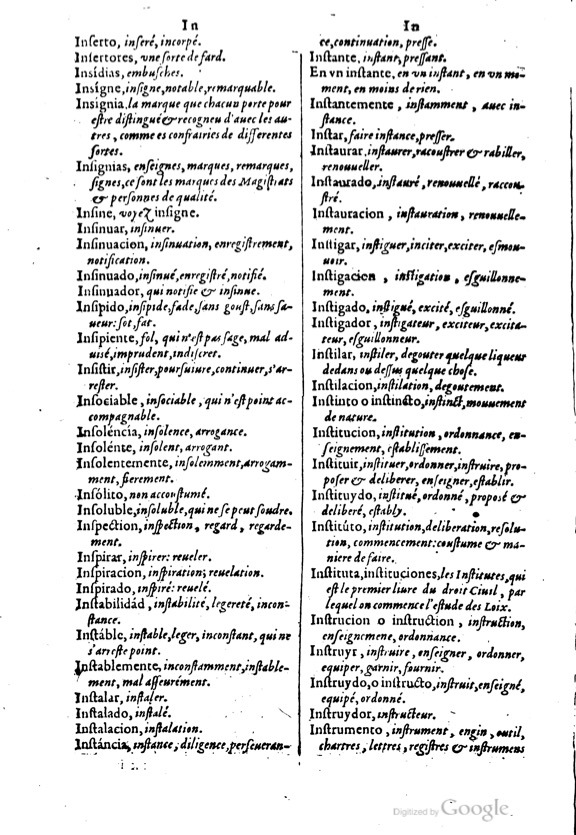 In
Inserto, inseré, incorpé.
Insertores, vne sorte de fard.
Insídias, embusches.
Insígne, insigne, notable, remarquable.
Insignia, la marque que chacun porte pour
estre distingué & recogneu d'auec les au-
tres, comme es confrairies de differentes
sortes.
Insignias, enseignes, marques, remarques,
signes, ce sont les marques des Magistrats
& personnes de qualité.
Insine, voyez insigne.
Insinuar, insinuer.
Insinuacion, insinuation, enregistrement,
notification.
Insinuado, insinué, enregistré, notifié.
Insinuador, qui notifie & insinue.
Insipido, insipide, fade, sans goust, sans sa-
ueur: sot, fat.
Insipiente, fol, qui n'est pas sage, mal ad-
uisé, imprudent, indiscret.
Insistir, insister, poursuiure, continuer, s'ar-
rester.
Insociable, insociable, qui n'est point ac-
compagnable.
Insoléncia, insolence, arrogance.
Insolénte, insolent, arrogant.
Insolentemente, insolemment, arrogam-
ment, fierement.
Insólito, non accoustumé.
Insoluble, insoluble, qui ne se peut soudre.
Inspection, inspection, regard, regarde-
ment.
Inspirar, inspirer: reueler.
Inspiracion, inspiration; reuelation.
Inspirado, inspiré: reuelé.
Instabilidád, instabilité, legereté, incon-
stance.
Instáble, instable, leger, inconstant, qui ne
s'arreste point.
Instablemente, inconstamment, instable-
ment, mal asseurément.
Instalar, instaler.
Instalado, instalé.
Instalacion, instalation.
Instáncia, instance, diligence, perseueran-
In
ce, continuation, presse.
Instante, instant, pressant.
En vn instante, en vn instant, en vn mo-
ment, en moins de rien.
Instantemente, instamment, auec in-
stance.
Instar, faire instance, presser.
Instaurar, instaurer, racoustrer & rabiller,
renouueller.
Instaurado, instauré, renouuellé, raccou-
stré.
Instauracion, instauration, renouuelle-
ment.
Instigar, instiguer, inciter, exciter, esmou-
uoir.
Instigacion, instigation, esguillonne-
ment.
Instigado, instigué, excité, esguillonné.
Instigador, instigateur, exciteur, excita-
teur, esguillonneur.
Instilar, instiler, degouter quelque liqueur
dedans ou dessus quelque chose.
Instilacion, instilation, degoutement.
Instinto o instincto, instinct, mouuement
de nature.
Institucion, institution, ordonnance, en-
seignement, establissement.
Instituir, instituer, ordonner, instruire, pro-
poser & deliberer, enseigner, establir.
Instituydo, institué, ordonné, proposé &
deliberé, estably.
Institúto, institution, deliberation, resolu-
tion, commencement: coustume & ma-
niere de faire.
Instituta, instituciones, les Institutes, qui
est le premier liure du droit Ciuil, par
lequel on commence l'estude des Loix.
Instrucion o instruction, instruction,
enseignemene, ordonnance.
Instruyr, instruire, enseigner, ordonner,
equiper, garnir, fournir.
Instruydo, o instructo, instruit, enseigné,
equipé, ordonné.
Instruydor, instructeur.
Instrumento, instrument, engin, outil,
chartres, lettres, registres & instrumens
Digitized by Google